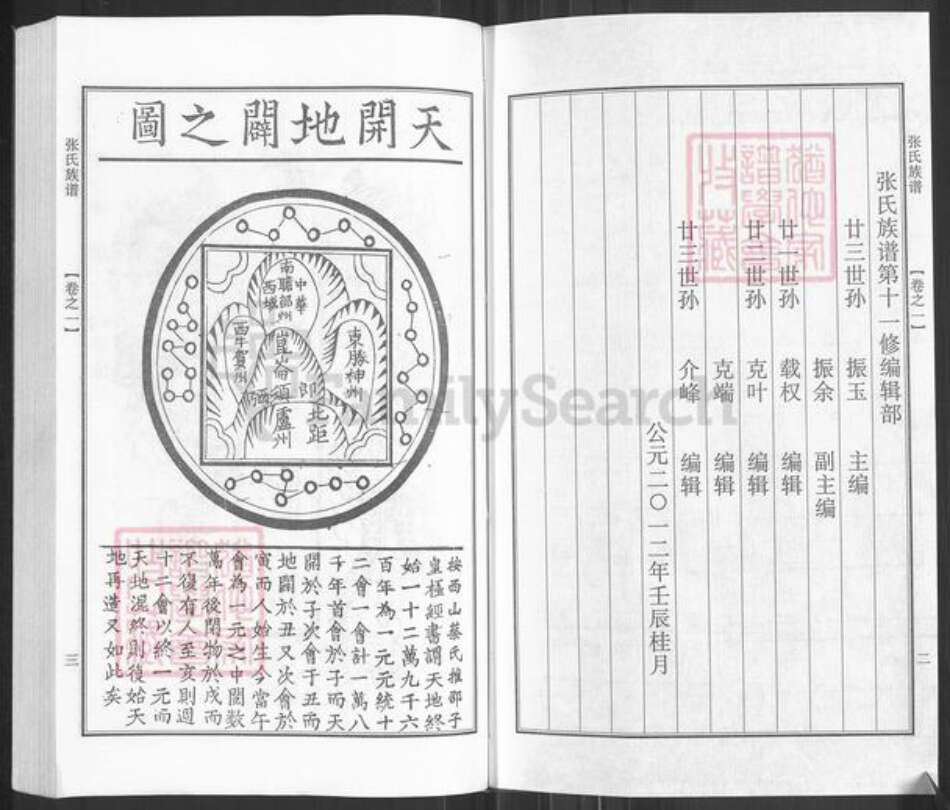 张氏族谱
【卷之一】
二
张氏族谱第十一修编辑部
廿三世孙 振玉 主编
振余 副主编
廿一世孙 载权 编辑
廿二世孙 克叶 编辑
克端 编辑
廿三世孙 介峰 编辑
公元二〇一二年壬辰桂月
天開地闢之圖
南贍部州
中華
西域
東勝神州
西牛賀州
崑崙頂
北距盧州
按西山蔡氏推邵子
皇極經書謂天地終
始一十二萬九千六
百年為一元元統十
二會一會計一萬八
千年首會於子而天
開於子次會于丑而
地闢於丑又次會於
寅而人始生今當午
會為一元之中闕数
萬年後閉物於戌而
不復有人至亥則週
十二會以終一元而
天地混終則復始天
地再造又如此矣
张氏族谱
【卷之一】
三
FamilySearch